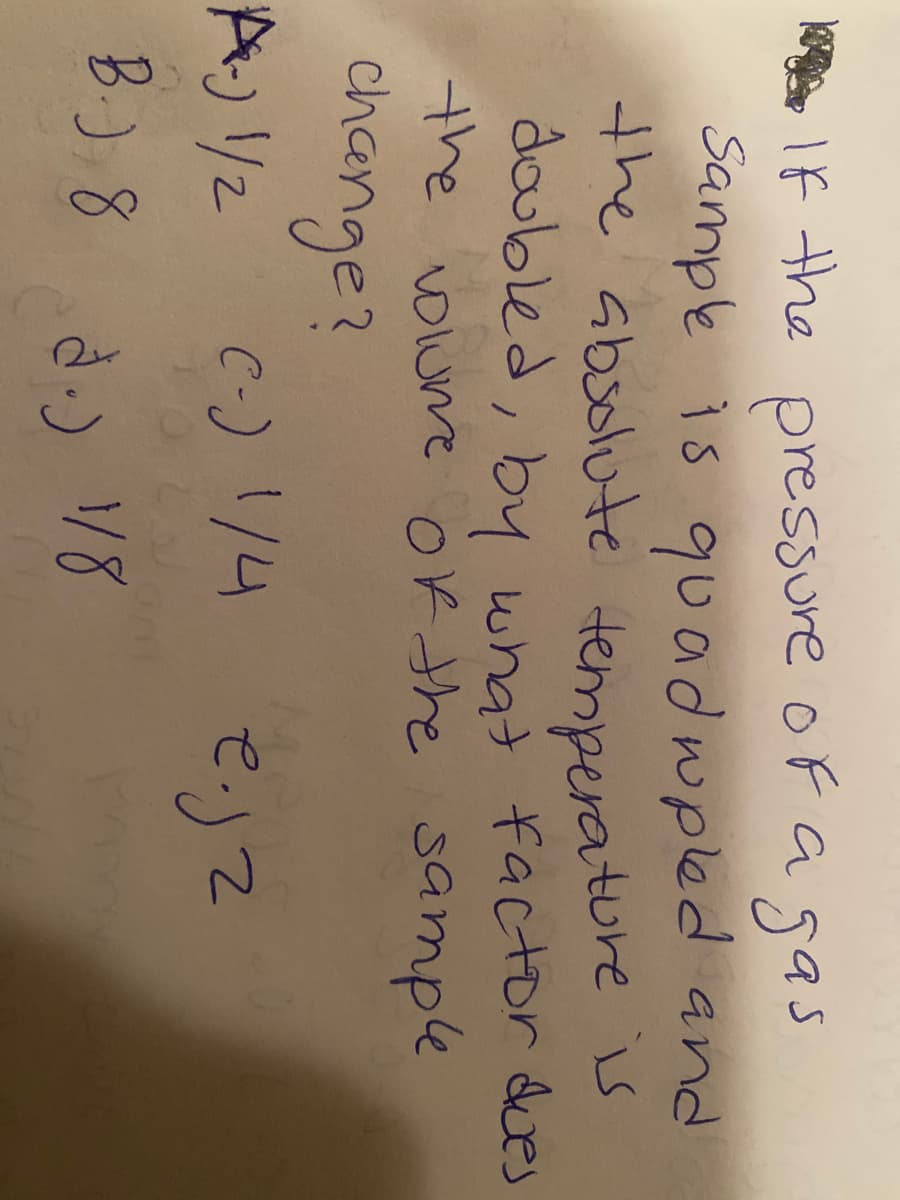 If the pressure of a gas
sample is quadrupled and
the absolute temperature is
doubled, by what factor does
the volume of the sample
change?
A.) 1/2 C.) 1/4 e.) 2
B.) 8 d.) 1/8